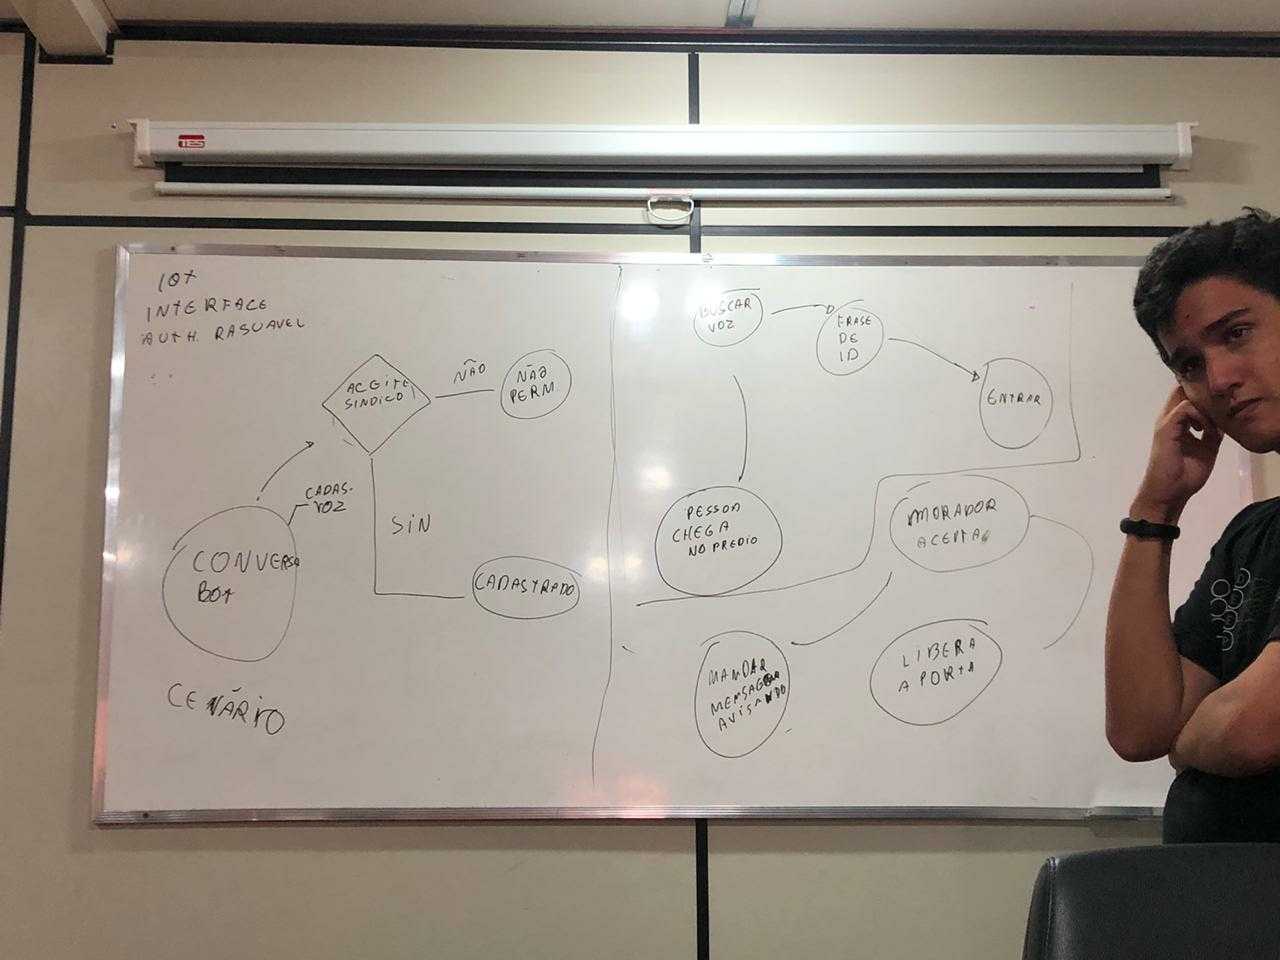 TES
IOT
INTERFACE
AUTH. RASUAVEL
ACEITE
SINDICO
NÃO
NÃO
PERM
CADAS-
VOZ
CONVERSA
BOT
SIN
CADASTRADO
CENÁRIO
BUSCAR
VOZ
FRASE
DE
ID
ENTRAR
PESSOA
CHEGA
NO PREDIO
MORADOR
ACEPTA
MANDAR
MENSAGEM
AVISANDO
LIBERA
A PORTA